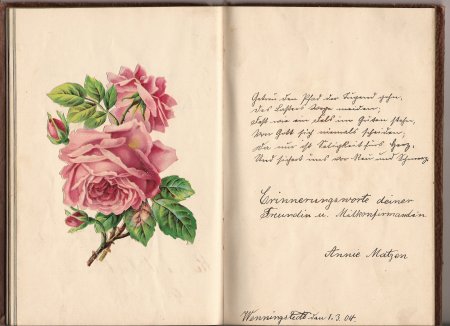 Getreu den Pfad der Tugend gehn,
Des Lasters Wege meiden;
Fest wie ein Fels im Guten stehn,
Von Gott sich niemals scheiden,
Da nur ist Seligkeit fürs Herz,
Und sichert uns vor Reu und Schmerz
Erinnerungsworte deiner
Freundin u. Mitkonfirmandin
Annie Matzen
Wenningstedt den 1.3.04.